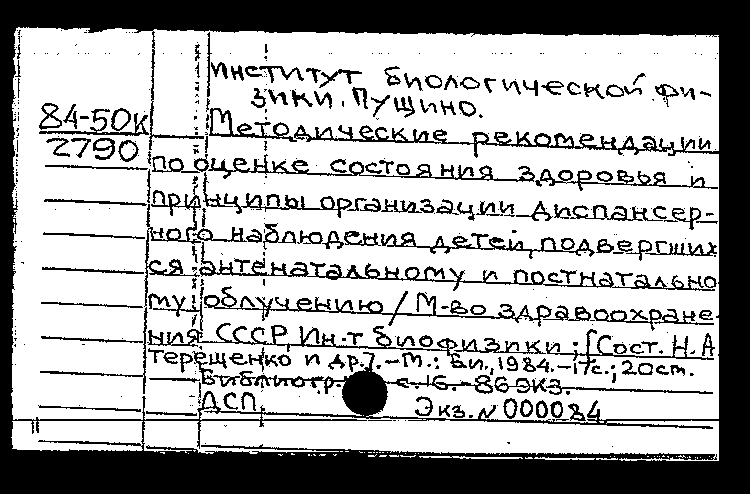 институт биологической фи-
зики. Пущино.
84-50к
2790
Методические рекомендации
по оценке состояния здоровья и
принципы организации диспансер-
ного наблюдения детей, подвергших
ся антенатальному и постнатально
му облучению / М-во здравоохране-
ния СССР, Ин-т биофизики ; [Сост. Н.А
Терещенко и др.]. - М. : Б.и., 1984. - 17с. ; 20 см.
Библиогр. с. 16. - 86 экз.
ДСП.
Экз. N 000084